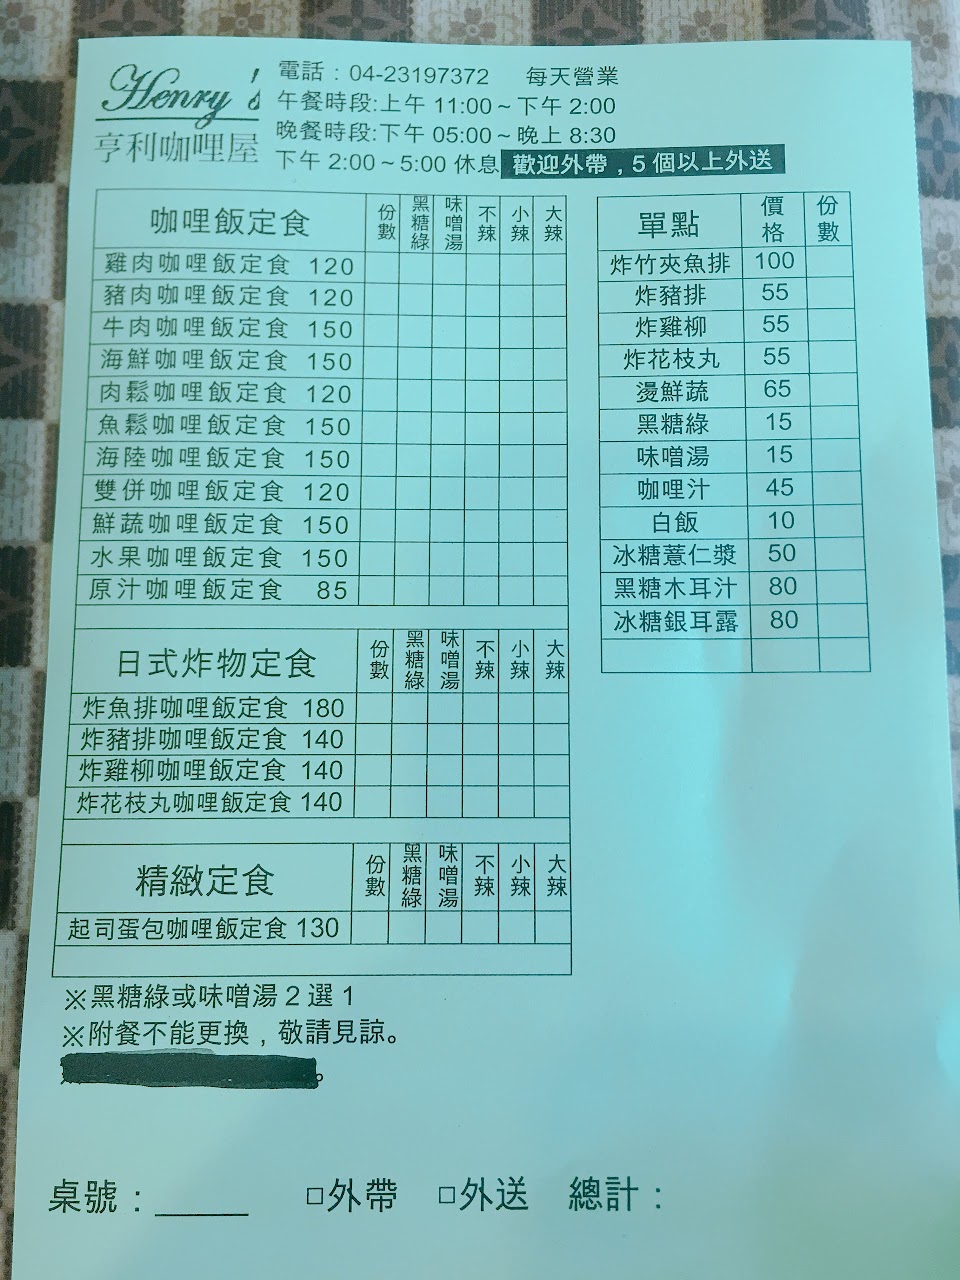 Henry's
亨利咖哩屋
電話：04-23197372 每天營業
午餐時段:上午 11:00～下午 2:00
晚餐時段:下午 05:00～晚上 8:30
下午 2:00～5:00 休息 歡迎外帶，5 個以上外送
咖哩飯定食 份數 黑糖綠 味噌湯 不辣 小辣 大辣
雞肉咖哩飯定食 120
豬肉咖哩飯定食 120
牛肉咖哩飯定食 150
海鮮咖哩飯定食 150
肉鬆咖哩飯定食 120
魚鬆咖哩飯定食 150
海陸咖哩飯定食 150
雙併咖哩飯定食 120
鮮蔬咖哩飯定食 150
水果咖哩飯定食 150
原汁咖哩飯定食 85
日式炸物定食 份數 黑糖綠 味噌湯 不辣 小辣 大辣
炸魚排咖哩飯定食 180
炸豬排咖哩飯定食 140
炸雞柳咖哩飯定食 140
炸花枝丸咖哩飯定食 140
精緻定食 份數 黑糖綠 味噌湯 不辣 小辣 大辣
起司蛋包咖哩飯定食 130
單點 價格 份數
炸竹夾魚排 100
炸豬排 55
炸雞柳 55
炸花枝丸 55
燙鮮蔬 65
黑糖綠 15
味噌湯 15
咖哩汁 45
白飯 10
冰糖薏仁漿 50
黑糖木耳汁 80
冰糖銀耳露 80
※黑糖綠或味噌湯 2 選 1
※附餐不能更換，敬請見諒。
。
桌號：_____ □外帶 □外送 總計：